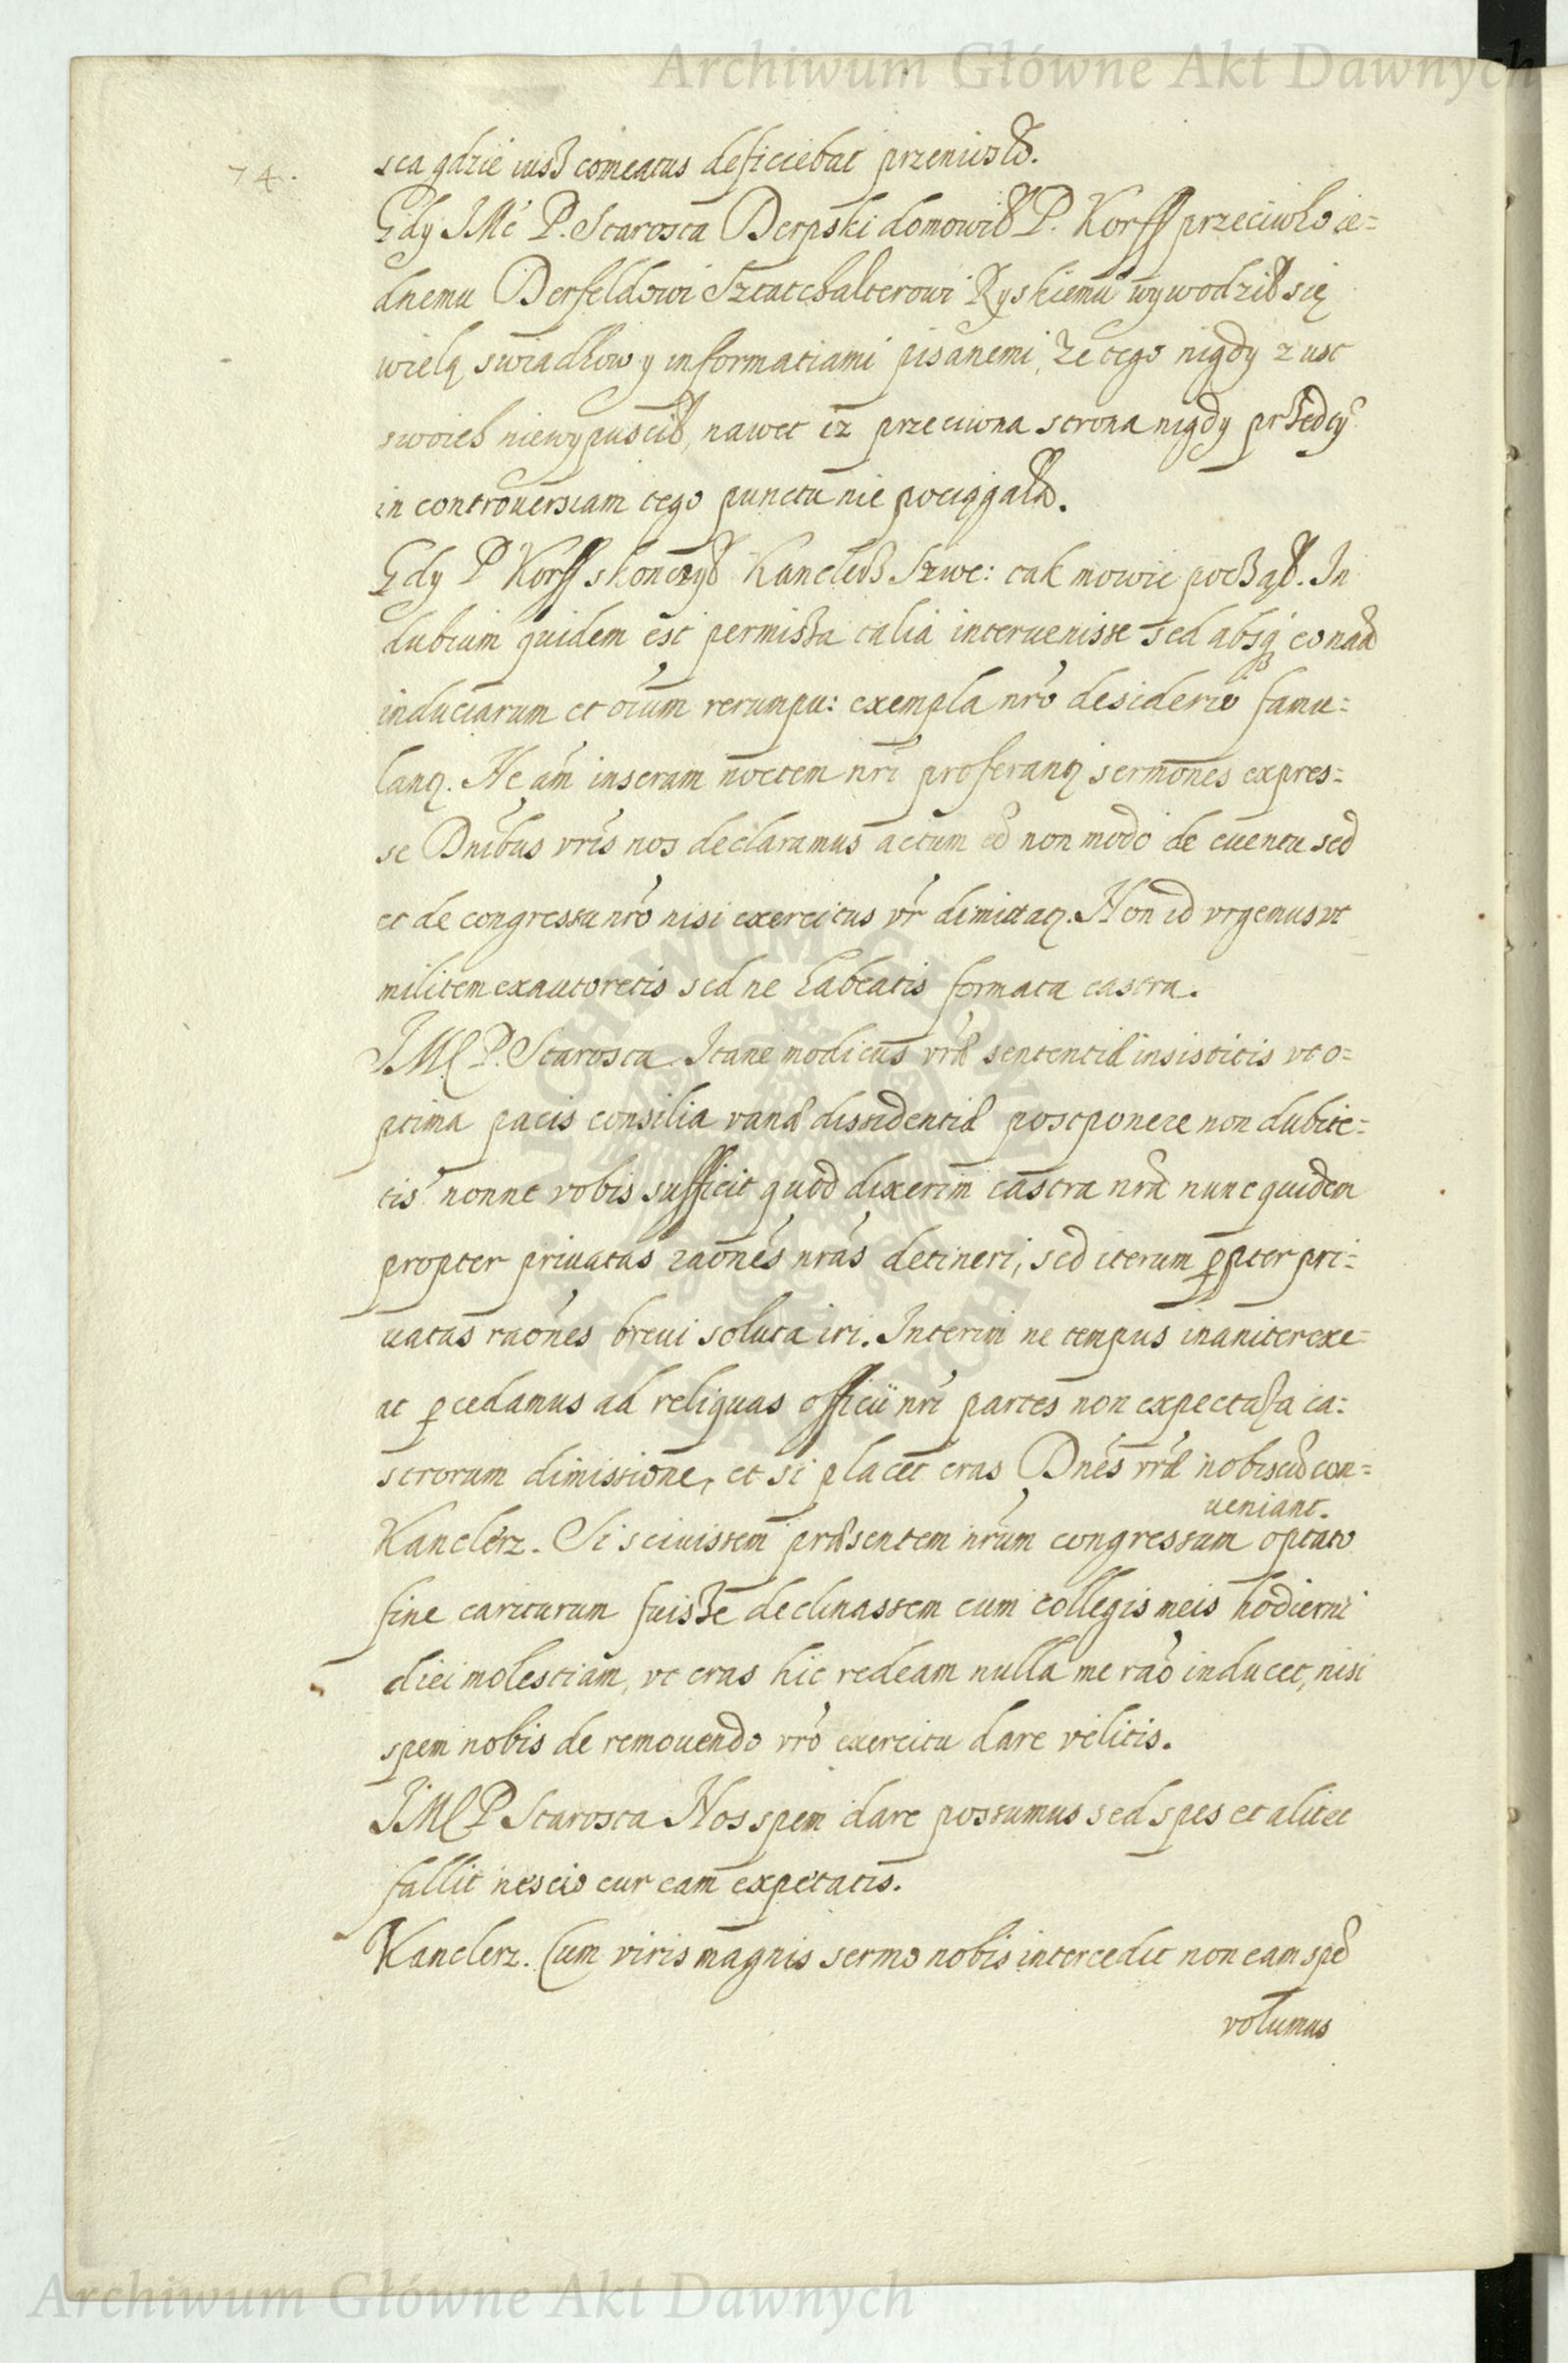 Archiwum Główne Akt Dawnych
74.
sca gdzie iusz comeatus deficiebat przeniosło.
Gdy JMć P. Starosta Derpski domowił P. Korff przeciwko ie=
dnemu Derfeldowi Sztatchalterowi Ryskiemu wywodził się
wielą swiadkow y informatiami pisanemi, że tego nigdy z ust
swoich niewypuscił, nawet iż przeciwna strona nigdy przedtym
in controuersiam tego punctu nie pociągała.
Gdy P Korff skonczył Kanclerz Szwe: tak mowic począł. In
dubium quidem est permissa talia interuenisse sed absq
induciarum et oium rerumpu: exempla nro desiderio famu=
lant. Ne am inseram noctem nri proferant sermones expres=
se Dnibus vris nos declaramus actum ee non modo de euentu sed
et de congressu nro nisi exercitus vr dimittat. Non id vrgemus vt
militem exautoretis sed ne habeatis formata castra.
JMć P. Starosta Itane modicus vræ sententiæ insistitis vt o=
ptima pacis consilia vanæ dissidentiæ postponere non dubite=
tis? nonne vobis sufficit quod dixerim castra nra nunc quidem
propter priuatas raones nras detineri, sed iterum ppter pri=
uatas raones breui soluta iri. Interim ne tempus inaniter exe=
at pcedamus ad reliquas officii nri partes non expectata ca=
strorum dimissione, et si placet cras Dnes vræ nobiscu con=
ueniant.
Kanclerz. Si sciuissem præsentem nrum congressum optato
fine cariturum fuisse declinassem cum collegis meis hodierni
diei molestiam, vt cras hic redeam nulla me rao inducet, nisi
spem nobis de remouendo vro exercitu dare velitis.
JMć P Starosta Nos spem dare possumus sed spes et alit et
fallit nescio cur eam expetatis.
Kanclerz. Cum viris magnis sermo nobis intercedit non eam spe
volumus
Archiwum Główne Akt Dawnych